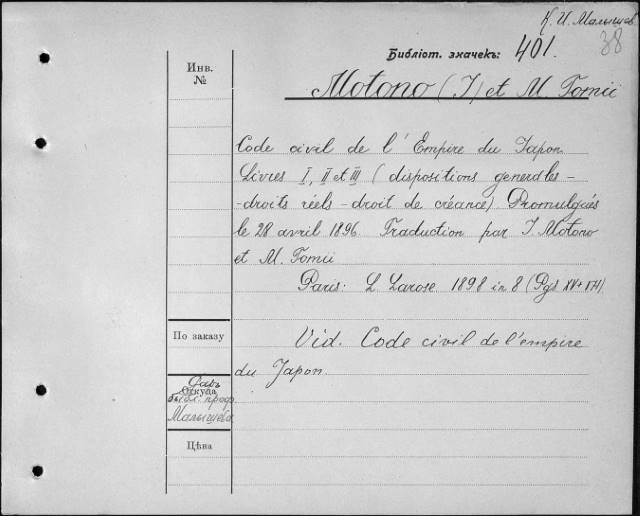 К. И. Малышев
38
Библіот. значекъ: 401.
Инв.
№
Motono (I) et M. Tomii
Code civil de l'Empire du Japon
Livres I, II et III (dispositions generdles -
-droits réels - droit de créance) Promulgués
le 28 avril 1896. Traduction par I. Motono
et M. Tomii
Paris. L Larose 1898 in 8 (Pgs XV+171).
По заказу
Vid. Code civil de l'empire
du Japon.
Даръ
Откуда
библ. проф.
Малышева
Цѣна